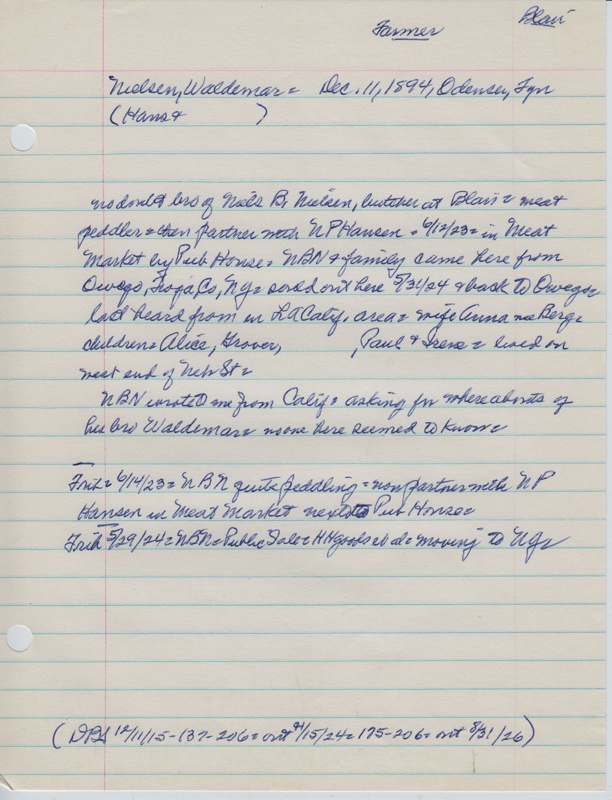 Blair
Farmer
Nielsen, Waldemar = Dec. 11, 1894, Odense, Fyn
(Hans & )
no doubt bro of Niels B. Nielsen, butcher at Blair = meat
peddler = then partner with N P Hansen = 6/12/23 = in Meat
Market by Pub House = NBN & family came here from
Owego, Tioga Co, Ny = sold out here 5/31/24 & back to Owego =
last heard from in LA Calif. area = wife Anna nee Berg =
children = Alice, Grover, , Paul & Irene = lived on
west end of Neb St =
NBN wrote to me from Calif = asking for whereabouts of
his bro Waldemar = no one here seemed to know =
6/14/23 = N B N quits peddling = now partner with N P
Hansen in Meat Market next to Pub House =
5/29/24 = NBN = Public Sale = HHgoods = moving to Ny =
(DBS 12/11/15-137-206 = out 4/15/24 = 175-206 = out 8/31/26)